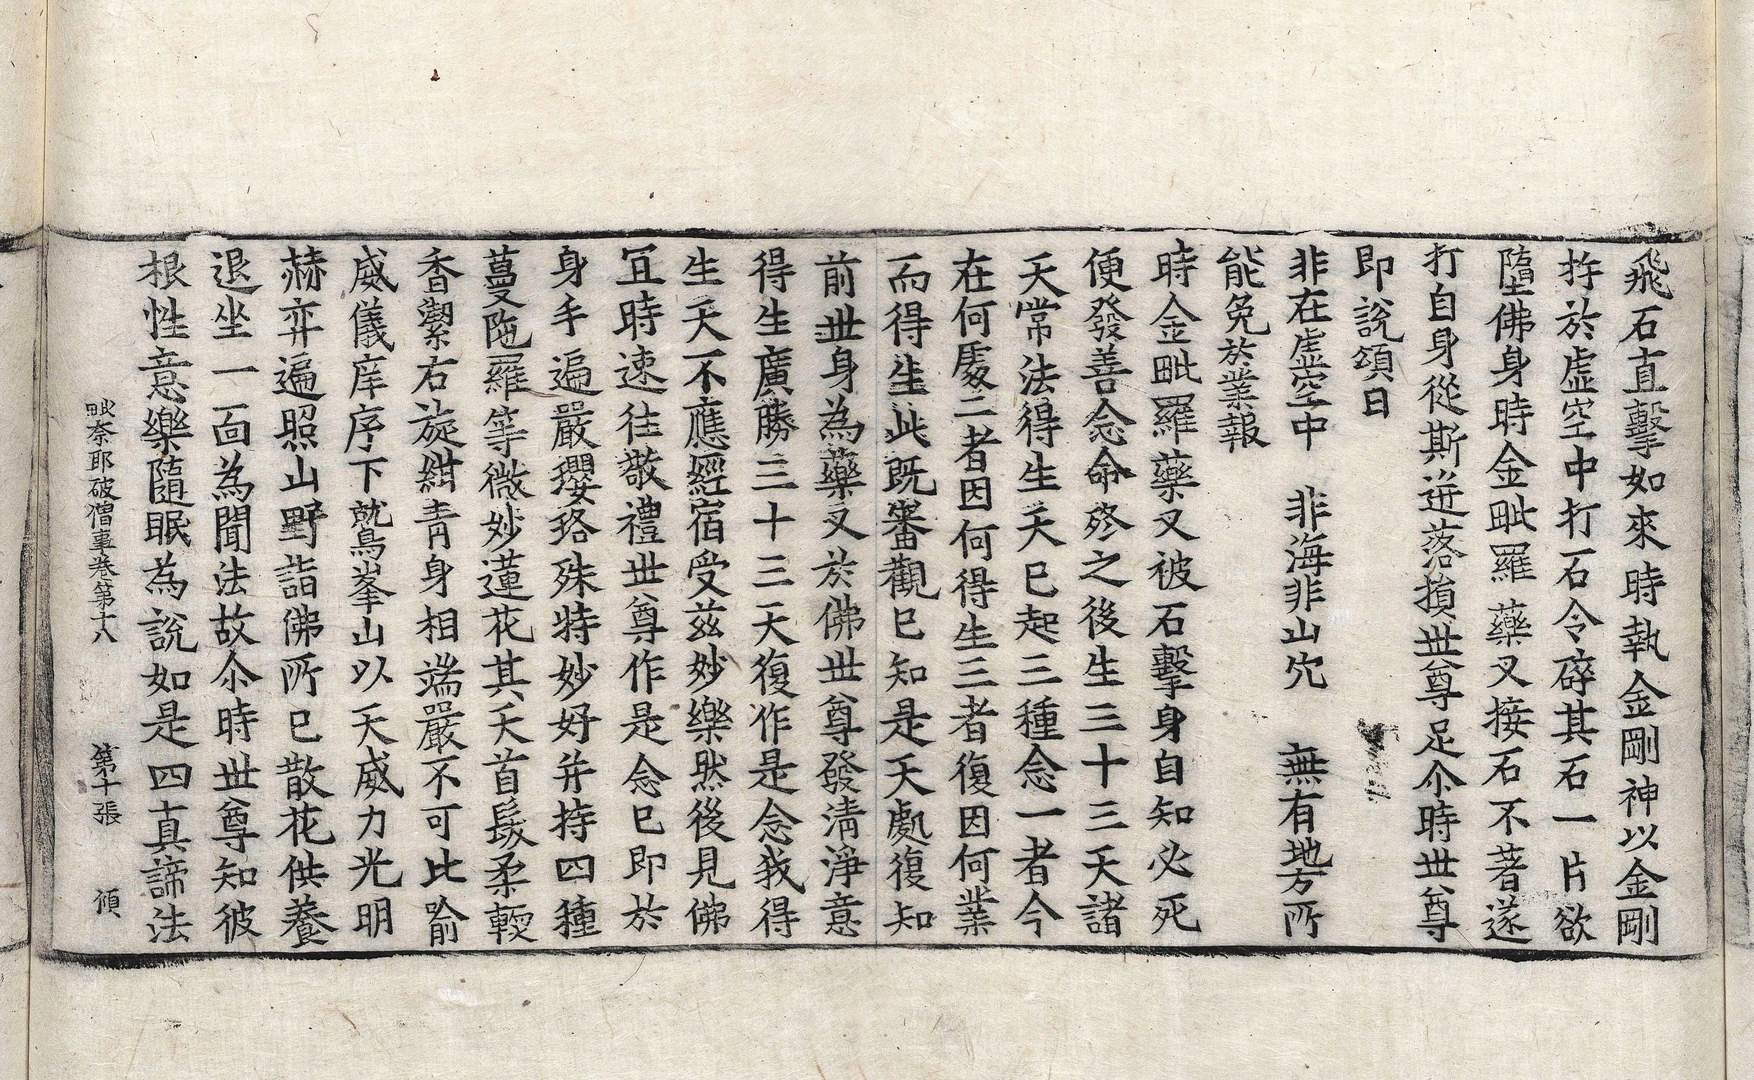 飛石直擊如來時執金剛神以金剛
杵於虛空中打石令碎其石一片欲
墮佛身時金毗羅藥叉接石不著遂
打自身從斯迸落損世尊足尒時世尊
即說頌曰
非在虛空中　非海非山穴　無有地方所
能免於業報
時金毗羅藥叉被石擊身自知必死
便發善念命終之後生三十三天諸
天常法得生天已起三種念一者今
在何處二者因何得生三者復因何業
而得生此既審觀已知是天處復知
前世身為藥叉於佛世尊發清淨意
得生廣勝三十三天復作是念我得
生天不應經宿受茲妙樂然後見佛
冝時速往敬禮世尊作是念已即於
身手遍嚴瓔珞殊特妙好并持四種
蔓陁羅等微妙蓮花其天首髮柔輭
香潔右旋紺青身相端嚴不可比喻
威儀庠序下就鳥峯山以天威力光明
赫弈遍照山野詣佛所已散花供養
退坐一面為聞法故尒時世尊知彼
根性意樂隨眠為說如是四真諦法
毗奈耶破僧事卷第十八　第十張　頎